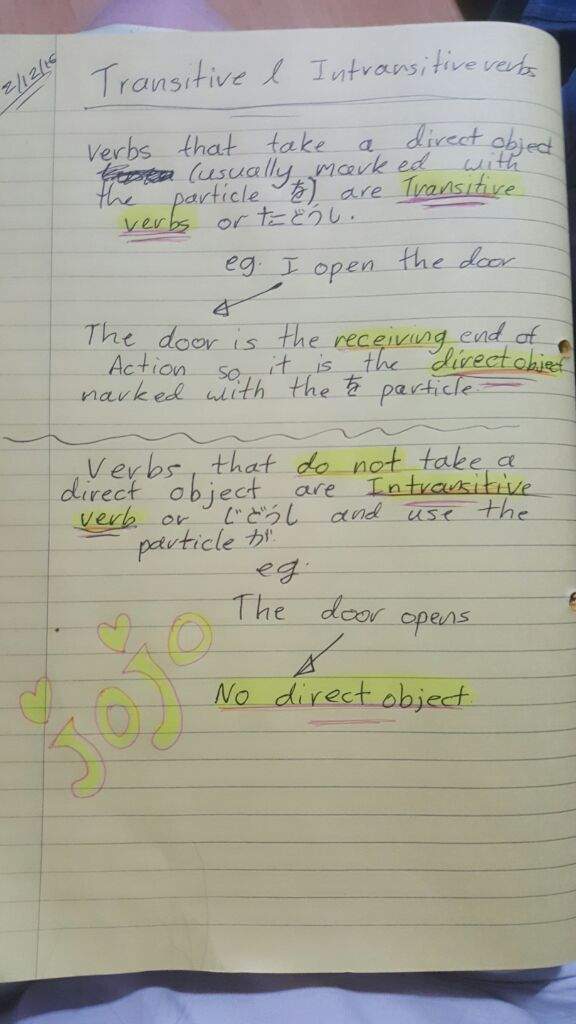 2/12/15
Transitive & Intransitive verbs
Verbs that take a direct object
(usually marked with
the particle を) are Transitive
verbs or たどうし.
eg. I open the door
The door is the receiving end of
Action so it is the direct object
marked with the を particle
Verbs that do not take a
direct object are Intransitive
verb or じどうし and use the
particle が
eg.
The door opens
No direct object
JOJO